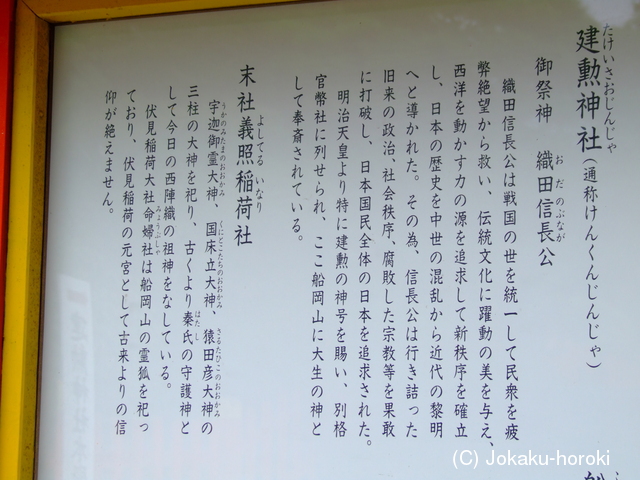 建勲神社（通称けんくんじんじゃ）
たけいさおじんじゃ
御祭神 織田信長公
おだのぶなが
織田信長公は戦国の世を統一して民衆を疲
弊絶望から救い、伝統文化に躍動の美を与え、
西洋を動かす力の源を追求して新秩序を確立
し、日本の歴史を中世の混乱から近代の黎明
へと導かれた。その為、信長公は行き詰った
旧来の政治、社会秩序、腐敗した宗教等を果敢
に打破し、日本国民全体の日本を追求された。
明治天皇より特に建勲の神号を賜い、別格
官幣社に列せられ、ここ船岡山に大生の神と
して奉斎されている。
末社義照稲荷社
よしてるいなり
宇迦御霊大神、国床立大神、猿田彦大神の
うかのみたまのおおかみ くにとこたちのおおかみ さるたひこのおおかみ
三柱の大神を祀り、古くより秦氏の守護神と
はたし
して今日の西陣織の祖神をなしている。
伏見稲荷大社命婦社は船岡山の霊狐を祀っ
みょうぶしゃ
ており、伏見稲荷の元宮として古来よりの信
仰が絶えません。
(C) Jokaku-horoki